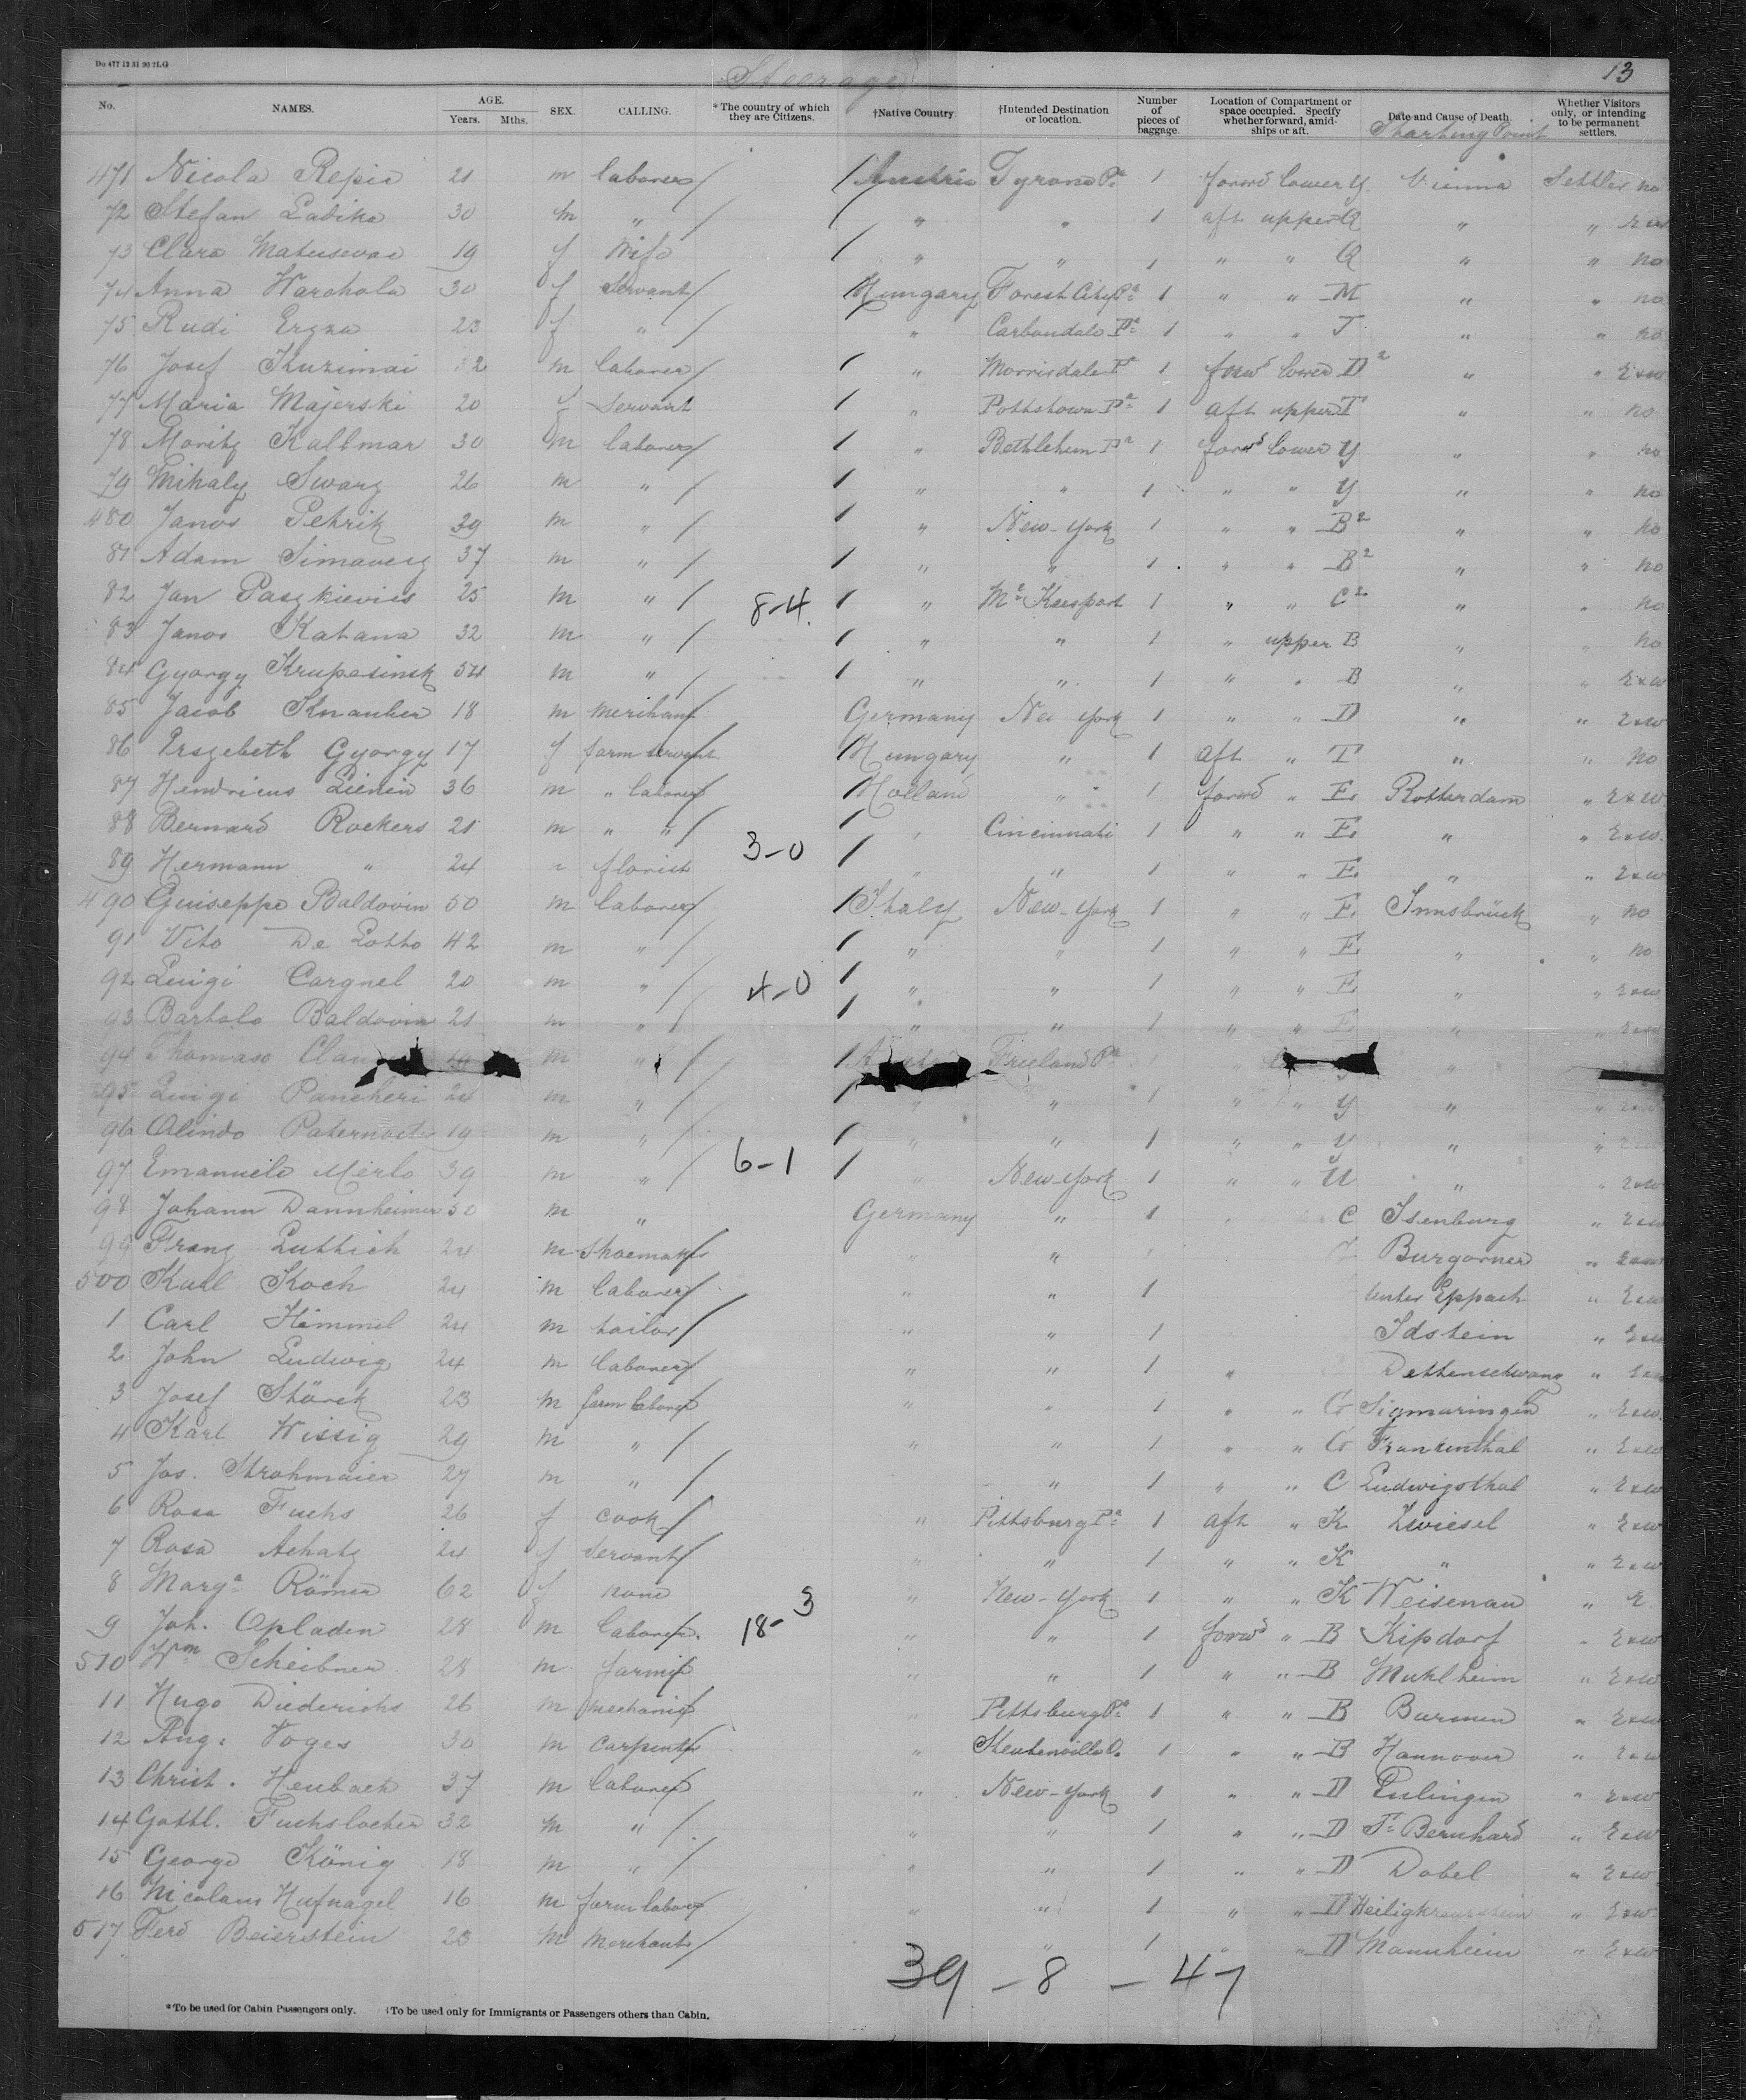 Do 477 12 31 90 2LG
Steerage 13
No. NAMES. AGE. Years. Mths. SEX. CALLING. *The country of which they are Citizens. †Native Country †Intended Destination or location. Number of pieces of baggage. Location of Compartment or space occupied. Specify whether forward, amidships or aft. Date and Cause of Death. Starting Point Whether Visitors only, or intending to be permanent settlers.
471 Nicola Repic 21 m laborer / / Austria Tyrone Pa 1 forwd lower Y Vienna Settler no
72 Stefan Labika 30 m " / / " " 1 aft upper Q " " r&w
73 Clara 19 f Wife / " " 1 " " Q " " no
74 Anna Warchola 30 f Servant / / Hungary Forest City Pa 1 " " M " " no
75 Rudi Ergza 23 f " / / " Carbondale Pa 1 " " T " " no
76 Josef Kuzimai 32 m laborer / / " Morrisdale Pa 1 forwd lower D2 " " r&w
77 Maria Majerski 20 f Servant / " Pottstown Pa 1 aft upper T " " no
78 Moritz Kallmar 30 m laborer / / " Bethlehem Pa 1 forwd lower Y " " no
79 Mihaly Swarz 26 m " / / " " 1 " " Y " " no
480 Janos Petrik 39 m " / / " New-York 1 " " B2 " " no
81 Adam Simaverz 37 m " / / " " 1 " " B2 " " no
82 Jan Paszkievics 25 m " / 8-4. / " Mc Keesport 1 " " C2 " " no
83 Janos Katana 32 m " / / " " 1 " upper B " " no
84 Gyorgy Krupasinsk 54 m " / / " " 1 " " B " " r&w
85 Jacob Knauber 18 m merchant / Germany New York 1 " " D " " r&w
86 Erszebeth Gyorgy 17 f farm servant / / Hungary " 1 aft " T " " no
87 Hendricus Lienin 36 m " laborer / / Holland " 1 forwd " E Rotterdam " r&w
88 Bernard Rockers 21 m " " / / " Cincinnati 1 " " E " " r&w
89 Hermann " 24 " florist 3-0 / " " 1 " " E " " r&w
490 Guiseppe Baldovin 50 m laborer / / Italy New-York 1 " " E Innsbrück " no
91 Vito De Lotto 42 m " / / " " 1 " " E " " no
92 Luigi Cargnel 20 m " / 4-0 / " " 1 " " E " " r&w
93 Bartolo Baldovin 21 m " / / " " 1 " " E " " r&w
94 Thomaso m " / / Freeland Pa "
95 Luigi Pancheri 24 m " / / " " 1 " " Y " "
96 Olindo 19 m " / / " " 1 " " Y " "
97 Emanuele Merlo 39 m " / 6-1 / " New-York 1 " " U " " r&w
98 Johann Dannheimer 50 m " Germany " 1 C Isenburg " r&w
99 Franz Luttich 24 m Shoemaker / " Burgorner " r&w
500 Karl Koch 24 m laborer / " " 1 Unter Eppach " r&w
1 Carl Himmel 24 m tailor / " " 1 Idstein " r&w
2 John Ludwig 24 m laborer / " " 1 " Dettenschwang " r&w
3 Josef Störck 23 m farm laborer / " " 1 " " G Sigmaringen " r&w
4 Karl Wissig 29 m " / " " 1 " " G Frankenthal " r&w
5 Jos. Strohmaier 27 m " / " 1 " " C Ludwigsthal " r&w
6 Rosa Fuchs 26 f cook / " Pittsburg Pa 1 aft " K Zwiesel " r&w
7 Rosa Achatz 24 f Servant / " " 1 " " K " " r&w
8 Marga Römer 62 f none " New-York 1 " " K Weisenau " r
9 Joh. Opladen 28 m laborer / 18-3 " " 1 forwd " B Kipdorf " r&w
510 Wm Scheibner 28 m farmer / " " 1 " " B Muhlheim " r&w
11 Hugo Diederichs 26 m mechanic / " Pittsburg Pa 1 " " B Barmen " r&w
12 Aug: Voges 30 m carpenter / " Steubenville O. 1 " " B Hannover " r&w
13 Christ. Heubach 37 m laborer / " New-York 1 " " D Eislingen " r&w
14 Gottl. Fuchslocher 32 m " / " " 1 " " D St Bernhard " r&w
15 George König 18 m " / " " 1 " " D Dobel " r&w
16 Nicolaus Hufnagel 16 m farm laborer / " " 1 " " D Heiligkreuzstein " r&w
517 Ferd Beierstein 23 m Merchant / " 1 " " D Mannheim " r&w
39 - 8 - 47
*To be used for Cabin Passengers only. †To be used only for Immigrants or Passengers others than Cabin.